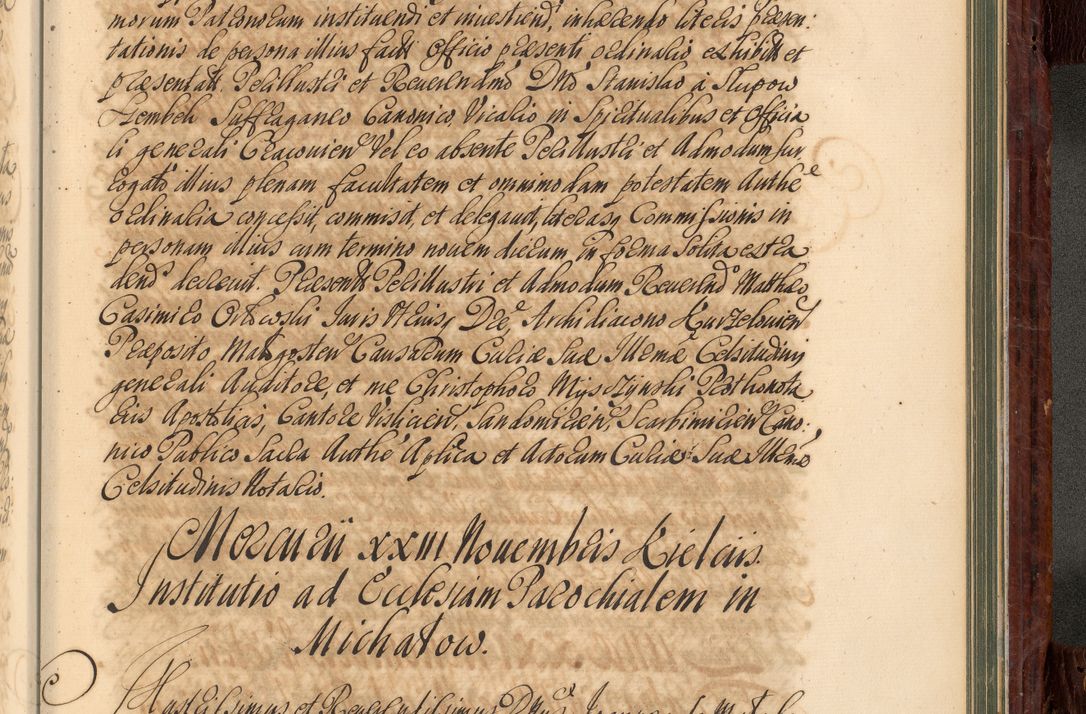 morum Patronorum instituendi et investiend; inhærendo literis præsen:
tationis de persona illius fact Officio præsenti ordinario exhibit et
præsentat. Perillustri et Reverendmo Dno Stanislao à Słupow
Szembek Suffraganeo Canonico, Vicario in Spiritualibus et Officia
li generali Cracovien Vel eo absente Perillustri et Admodum Sur
rogato illius plenam facultatem et omnimodam potestatem Authe
ordinaria concessit, commisit, et delegavit, literasq Commissionis in
personam illius cum termino novem dierum in forma solita extra
dend decrevit. Præsent Perillustri et Admodum Reverend Matthæo
Casimiro Orłowski Iuris Utriusq Dre Archidiacono Kurzelovien
Præposito, Causarum Curiæ Suæ Illmæ Celsitudinis
generali Auditore, et me Christophoro Myszczynski Prothonota
rio Apostolico, Cantore Vislicien, Sandomirien, Scarbimirien Cano:
nico Publico Sacra Authe Aplica et Actorum Curiæ Suæ Illmæ
Celsitudinis Notario.
Mercurii XXIII Novembris Kielciis.
Institutio ad Ecclesiam Parochialem in
Michałow.
Illustrissimus et Reverendissimus Dnus